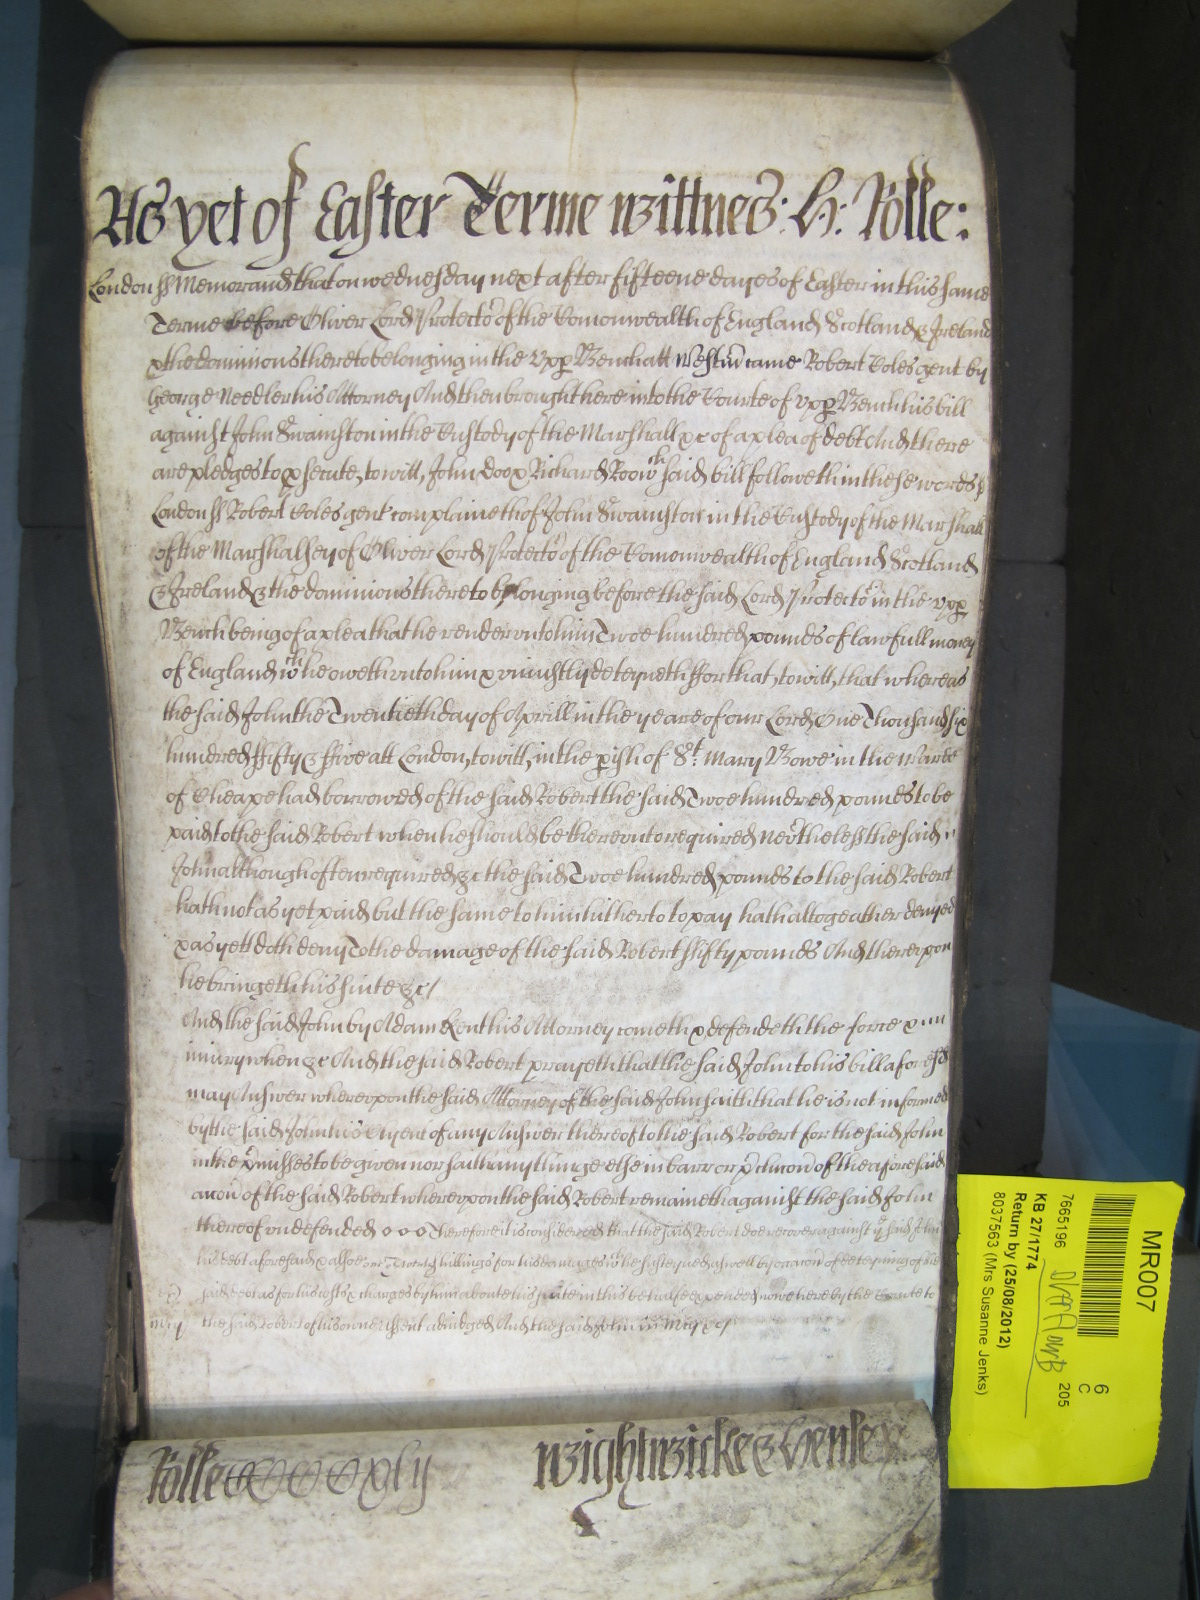 As yet of Easter Terme wittnes: H: Rolle:
London ss Memorand that on wednesday next after fifteene dayes of Easter in this same
Terme before Oliver Lord Protector of the Comonwealth of England Scotland & Ireland
& the dominions thereto belonging in the Upp Bench att Westm came Robert Coles gent by
George Needler his Attorney And then brought here into the Courte of upp Bench his bill
against John Swainston in the Custody of the Marshall &c of a plea of debt And there
are pledges to psecute, to witt, John Doo & Richard Roo wch said bill followeth in these words
London ss Robert Coles gent complaineth of John Swainston in the Custody of the Marshall
of the Marshalsey of Oliver Lord Protector of the Comonwealth of England Scotland
& Ireland & the dominions thereto belonging before the said Lord Protector in the upp
Bench being of a plea that he render unto him Twoe hundred pounds of lawfull money
of England wch he oweth unto him & uniustly deteyneth ffor that, to witt, that whereas
the said John the Twentieth day of Aprill in the yeare of our Lord One Thousand six
hundred ffifty & ffive att London, to witt, in the pish of St: Mary Bowe in the Warde
of Cheape had borrowed of the said Robert the said Twoe hundred pounds to be
paid to the said Robert when he should be thereunto required nevtheless the said
John although often required &c the said Twoe hundred pounds to the said Robert
hath not as yet paid but the same to him hitherto to pay hath altogeather denyed
& as yett doth deny To the damage of the said Robert ffifty pounds And thereupon
he bringeth his suite &c/
And the said John by Adam Kent his Attorney cometh & defendeth the force &
iniury when &c And the said Robert prayeth that the said John to his bill aforesd
may Answer whereupon the said Attorney of the said John saith that he is not informed
by the said John his Client of any Answer thereof to the said Robert for the said John
in the pmisses to be given nor saith any thinge else in barr or pclucon of the aforesaid
accon of the said Robert whereupon the said Robert remaineth against the said John
thereof undefended Therefore it is considered that the said Robert doe recover against ye said John
his debt aforesaid & alsoe Twenty shillings for his damages wch he susteyned aswell by occacon of deteyning of the
said debt as for his costs & charges by him aboute his suite in this behalfe expended nowe here by the Courte to
mcy the said Robert of his owne Assent adiudged And the said John in Mcy &c/
Rolle
xxly
Wightwicke & Henley
MR007
6
C
205
7665196
KB 27/1774
Return by (25/08/2012)
8037563 (Mrs Susanne Jenks)